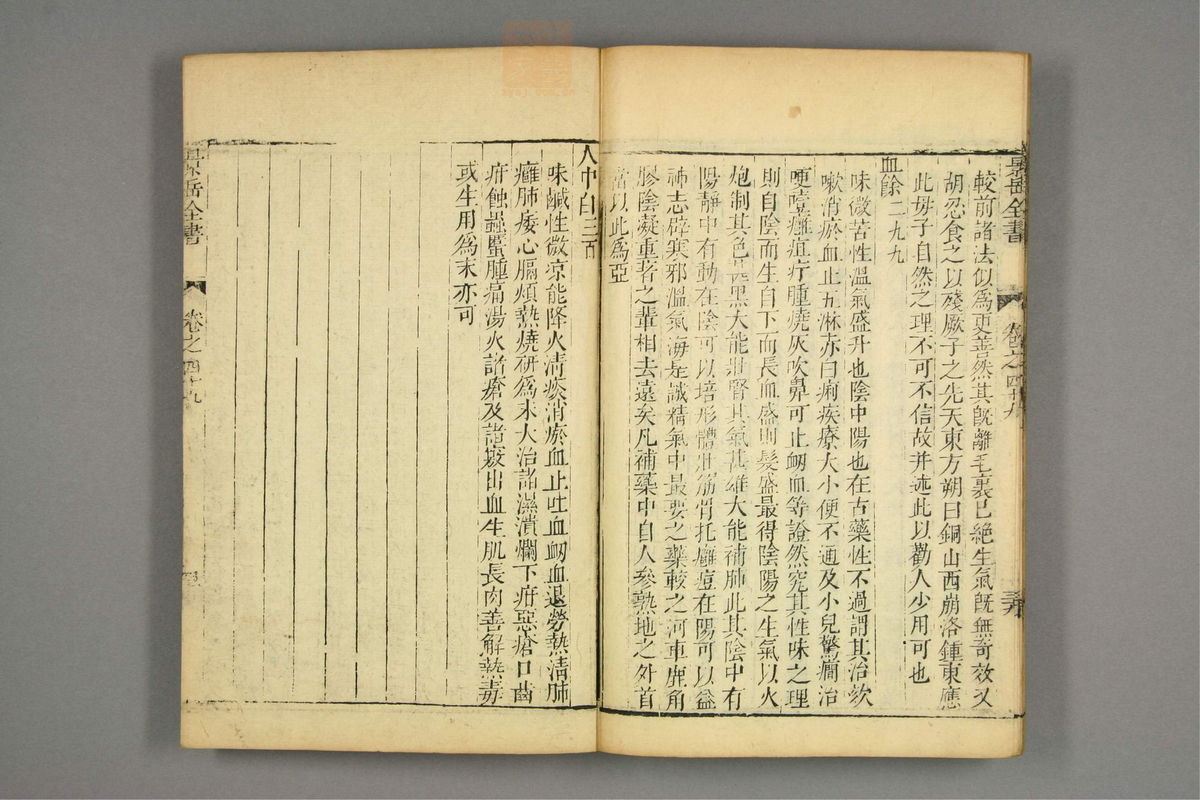 景岳全書 卷之四十九
較前諸法似爲更善然其旣離毛裏已絶生氣旣無奇效又
胡忍食之以殘厥子之先天東方朔曰銅山西崩洛鍾東應
此母子自然之理不可不信故并述此以勸人少用可也
血餘二九九
味微苦性溫氣盛升也陰中陽也在古藥性不過謂其治欬
嗽消瘀血止五淋赤白痢疾療大小便不通及小兒驚癎治
哽噎癰疽疔腫燒灰吹鼻可止衂血等證然究其性味之理
則自陰而生自下而長血盛則髮盛最得陰陽之生氣以火
炮制其色甚黑大能壯腎其氣甚雄大能補肺此其陰中有
陽靜中有動在陰可以培形體壯筋骨托癰痘在陽可以益
神志辟寒邪溫氣海是誠精氣中最要之藥較之河車鹿角
膠陰凝重著之輩相去遠矣凡補藥中自人參熟地之外首
當以此爲亞
人中白三百
味鹹性微凉能降火清痰消瘀血止吐血衂血退勞熱清肺
癰肺痿心膈煩熱燒研爲末大治諸濕潰爛下疳惡瘡口齒
疳蝕蟲䘌腫痛湯火諸瘡及諸竅出血生肌長肉善解熱毒
或生用爲末亦可
景岳全書 卷之四十九